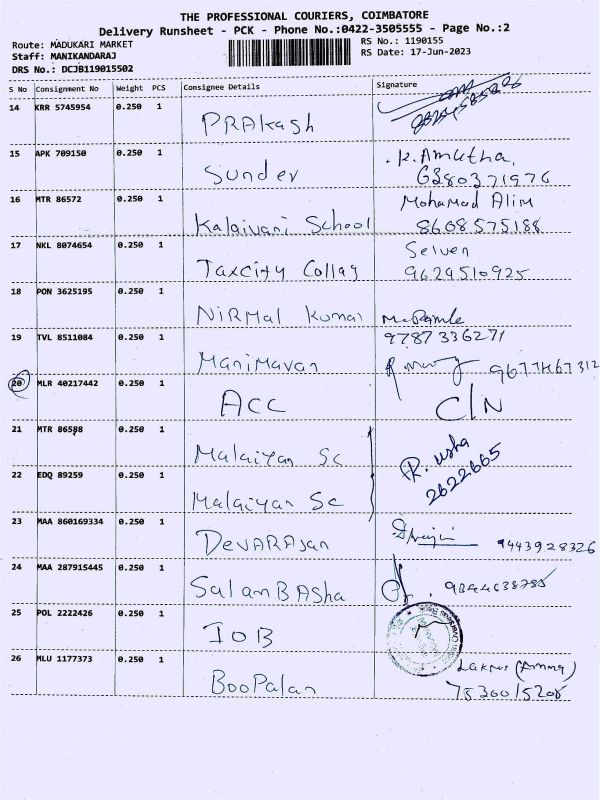 THE PROFESSIONAL COURIERS, COIMBATORE
Delivery Runsheet - PCK - Phone No.:0422-3505555 - Page No.:2
Route: MADUKARI MARKET
RS No.: 1190155
Staff: MANIKANDARAJ
RS Date: 17-Jun-2023
DRS No.: DCJB119015502
S No Consignment No Weight PCS Consignee Details Signature
14 KRR 5745954 0.250 1 PRAkash
15 APK 709150 0.250 1 Sunder K. Amutha,
6380371976
16 MTR 86572 0.250 1 Kalaivani School Mohamad Alim
8608575188
17 NKL 8074654 0.250 1 Taxcity Collag Selven
9629510925
18 PON 3625195 0.250 1 NIRMal Kumar
19 TVL 8511084 0.250 1 Manimavan 9787336271
20 MLR 40217442 0.250 1 ACC C/N
21 MTR 86588 0.250 1 Malaiyan Sc R. usha
2622665
22 EDQ 89259 0.250 1 Malaiyan Sc
23 MAA 860169334 0.250 1 DevARAjan 9443928326
24 MAA 287915445 0.250 1 Salam BAsha
25 POL 2222426 0.250 1 IOB
26 MLU 1177373 0.250 1 BooPalan (Amma)